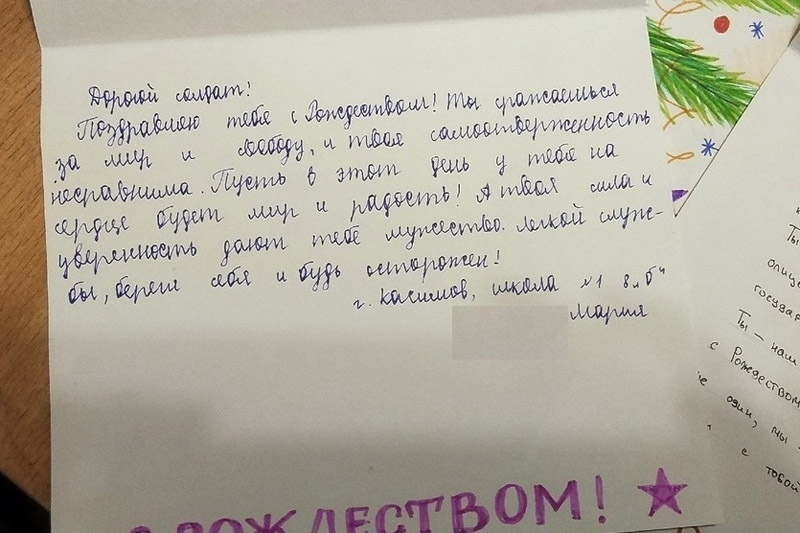 Дорогой солдат!
Поздравляю тебя с Рождеством! Ты сражаешься
за мир и свободу, и твоя самоотверженность
несравнима. Пусть в этот день у тебя на
сердце будет мир и радость! А твоя сила и
уверенность дают тебе мужество. Легкой служ-
бы, береги себя и будь осторожен!
г. Касимов, школа №1 8 „б“
Мария
С РОЖДЕСТВОМ!
Ты
госуда
Ты – наш
с Рождеством
один, мы
с тобой